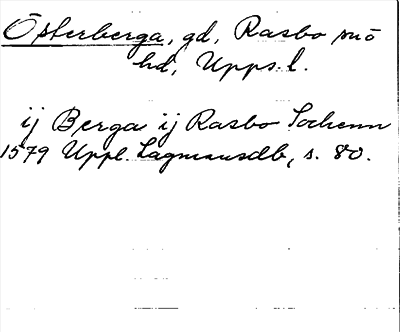 Österberga, gd, Rasbo sn o
hd, Upps. l.
ij Berga ij Rasbo Sochenn
1579 Uppl. Lagmansdb, s. 80.